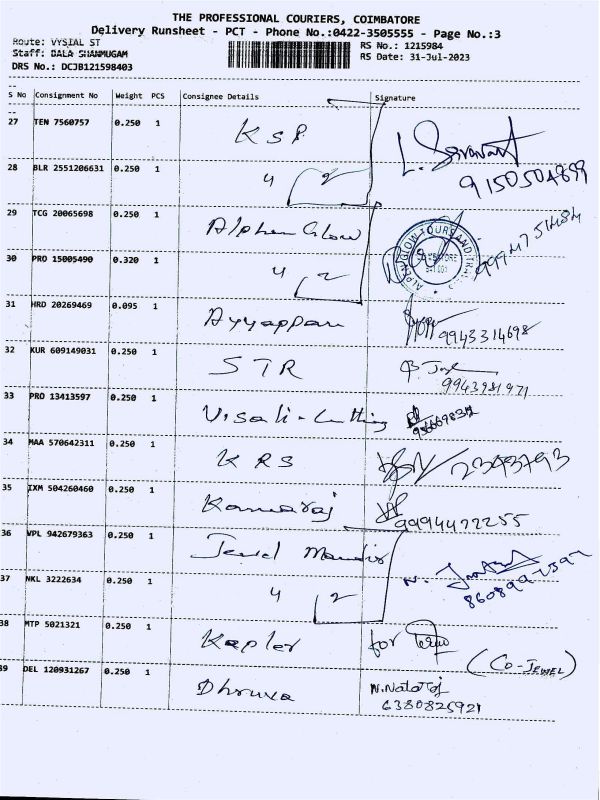 THE PROFESSIONAL COURIERS, COIMBATORE
Delivery Runsheet - PCT - Phone No.:0422-3505555 - Page No.:3
Route: VYSIAL ST
RS No.: 1215984
Staff: BALA SHANMUGAM
RS Date: 31-Jul-2023
DRS No.: DCJB121598403
S No Consignment No Weight PCS Consignee Details Signature
27 TEN 7560757 0.250 1 KSP
28 BLR 2551206631 0.250 1 4 2
9150504899
29 TCG 20065698 0.250 1 Alphen Glow
30 PRO 15005490 0.320 1 4 2
31 HRD 20269469 0.095 1 Ayyappan 9943314698
32 KUR 609149031 0.250 1 STR
9943981971
33 PRO 13413597 0.250 1 Visali-Cutting
34 MAA 570642311 0.250 1 KRS 2343793
35 IXM 504260460 0.250 1 Kamaraj 9994472255
36 VPL 942679363 0.250 1 Jewel Mandir
37 NKL 3222634 0.250 1 4 2
38 MTP 5021321 0.250 1 Kapler for
(CO-JEWEL)
39 DEL 120931267 0.250 1 Dhruva N.Nataraj
6380825921